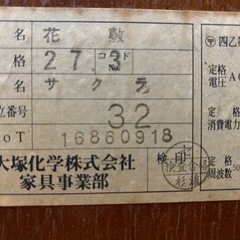 名 花敷
格 27.3 コード
名 サクラ
立番号 32
oT 16860918
大塚化学株式会社 検印
家具事業部
〒 四乙
定格
電圧 AC
定格
消費電力
定格
周波数 50